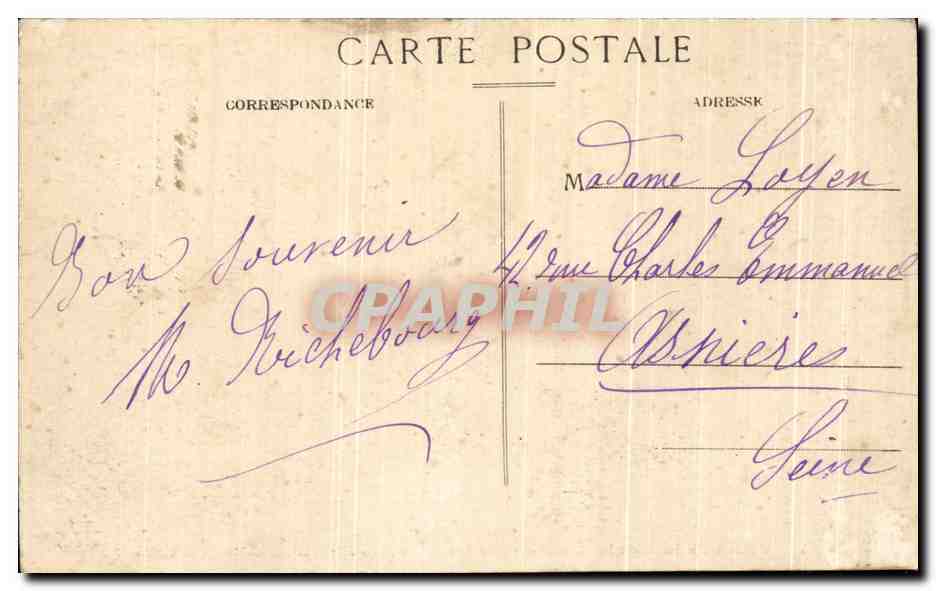 CARTE POSTALE
CORRESPONDANCE
ADRESSE
Bon Souvenir
M. Richebourg
Madame Loyen
42 rue Charles Emmanuel
Asnieres
Seine
CPAPHIL